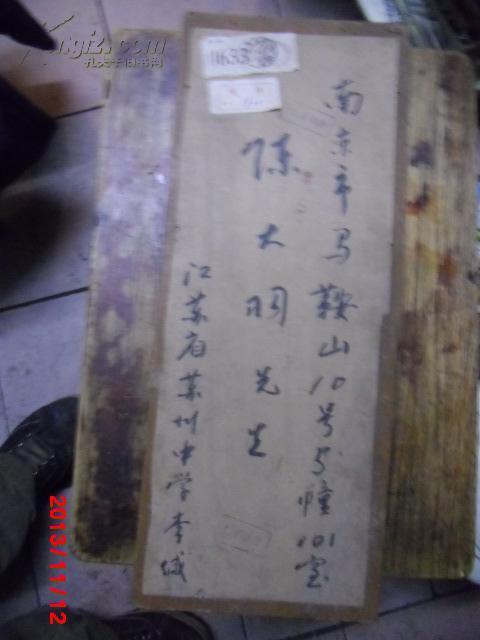 南京市马鞍山10号5幢101室
陈大明先生
江苏省苏州中学李城
11633
Kngfz.com
孔夫子旧书网
2013/11/12